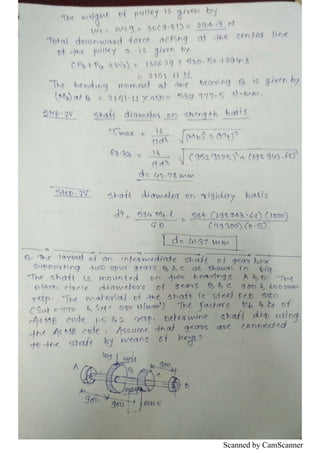 The weight of pulley is given by
W2 = W2 g = 30(9.81) = 294.3 N
Total downward force acting at the center line
of the pulley 2 is given by
(P3 + P4 + W2) = 1326.29 + 530.52 + 294.3
= 2151.11 N
The bending moment at the bearing B is given by
(Mb) at B = 2151.11 × 250 = 537 777.5 N-mm.
Step-IV Shaft diameter on strength basis
τmax = 16/πd3 √(Mb)2 + (Mt)2
= 16/πd3
d = 42.78 mm
Step-IV Shaft diameter on rigidity basis
d4 = 584 Mt l / Gθ = 584 (198943.68) (1000) / (79300) (0.5)
d = 41.37 mm
The layout of an intermediate shaft of gear box
supporting two spur gears B & C as shown in fig.
The shaft is mounted on two bearings A & D. The
pitch circle diameters of gears B & C 900 & 600 mm
resp. The material of the shaft is steel FeE 580
(Sut = 770 & Syt = 580 N/mm2) The factors Kb & Kt of
ASME code 1.5 & 2 resp. Determine shaft dia. using
the ASME code. Assume that gears are connected
to the shaft by means of keys?
A
B
900
D
900
900
Scanned by CamScanner